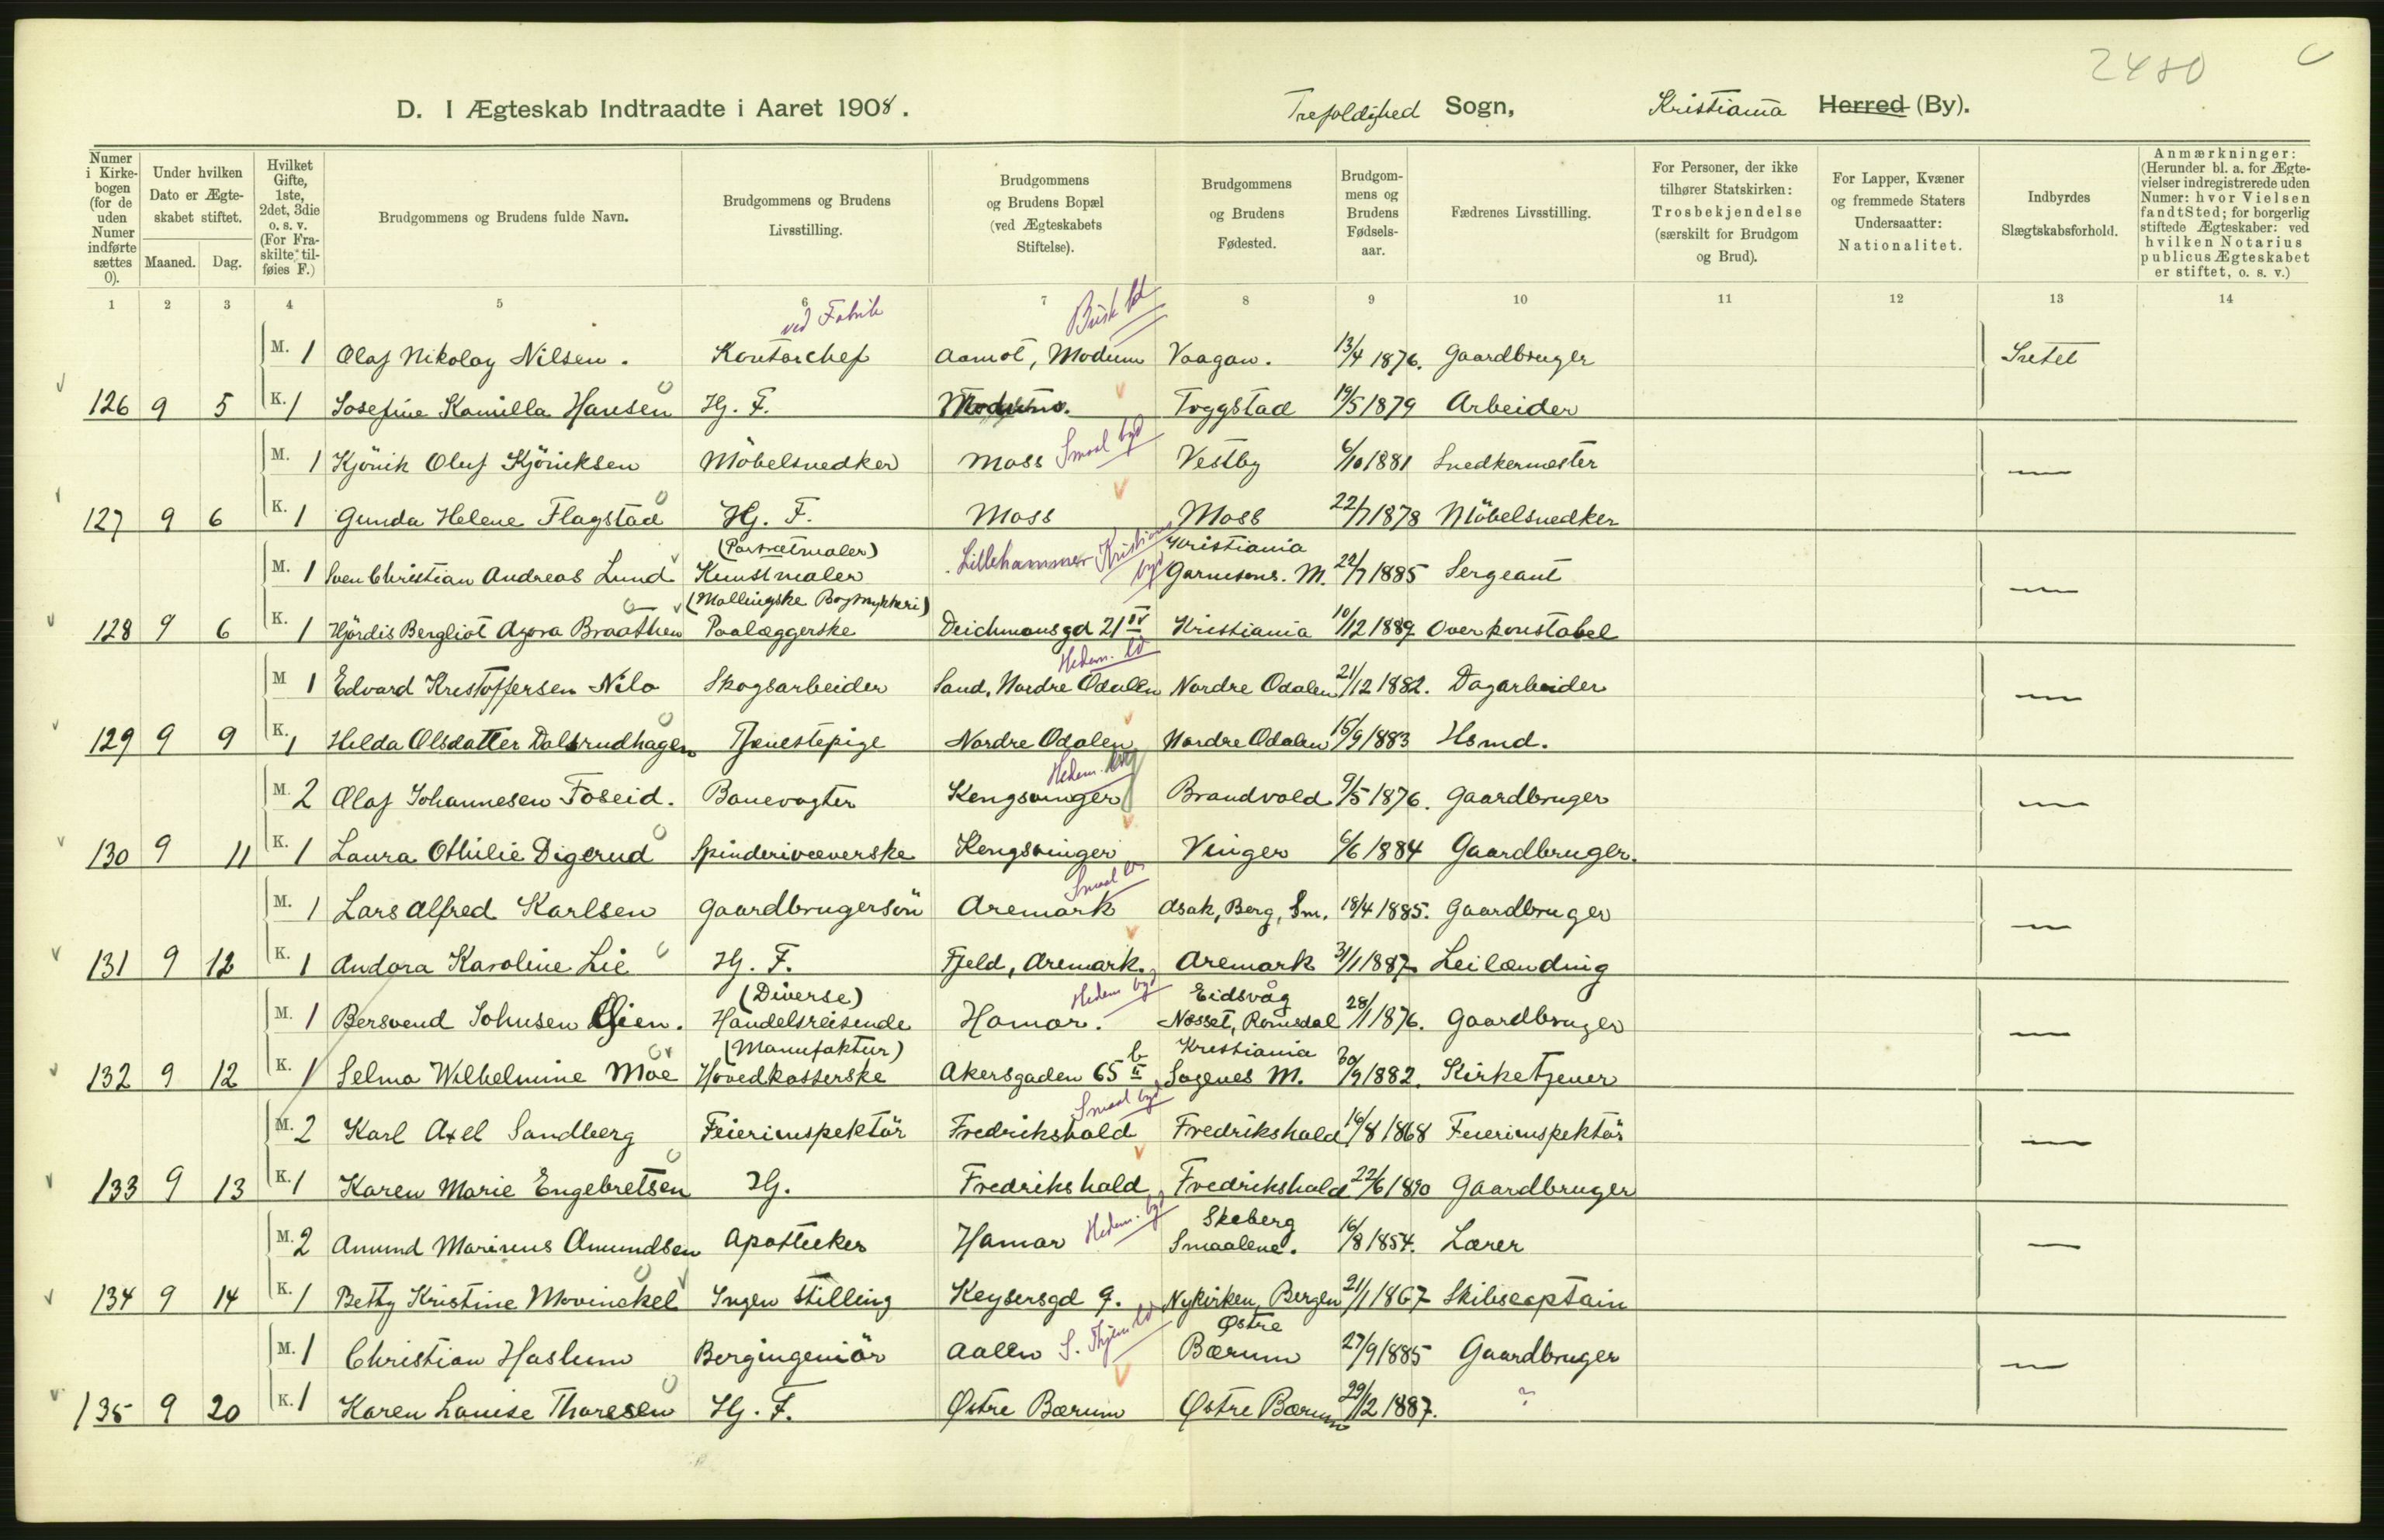 2480
D. I Ægteskab Indtraadte i Aaret 1908. Trefoldighed Sogn, Kristiania Herred (By).
Numer i Kirkebogen (for de uden Numer indførte sættes 0).
Under hvilken Dato er Ægteskabet stiftet.
Maaned. Dag.
Hvilket Gifte, 1ste, 2det, 3die o. s. v. (For Fraskilte tilføies F.)
Brudgommens og Brudens fulde Navn.
Brudgommens og Brudens Livsstilling.
Brudgommens og Brudens Bopæl (ved Ægteskabets Stiftelse).
Brudgommens og Brudens Fødested.
Brudgommens og Brudens Fødselsaar.
Fædrenes Livsstilling.
For Personer, der ikke tilhører Statskirken: Trosbekjendelse (særskilt for Brudgom og Brud).
For Lapper, Kvæner og fremmede Staters Undersaatter: Nationalitet.
Indbyrdes Slægtskabsforhold.
Anmærkninger: (Herunder bl. a. for Ægtevielser indregistrerede uden Numer: hvor Vielsen fandt Sted; for borgerlig stiftede Ægteskaber: ved hvilken Notarius publicus Ægteskabet er stiftet, o. s. v.)
1 2 3 4 5 6 7 8 9 10 11 12 13 14
ved Fabrik Busk ld
M. 1 Olaf Nikolay Nilsen. Kontorchef Aamot, Modum Vaagan. 13/4 1876. Gaardbruger Intet
126 9 5 K. 1 Josefine Kamilla Hansen Hj. F. Modum. Toggstad 19/5 1879 Arbeider
M. 1 Kjönik Oluf Kjöniksen Möbelsnedker Moss Smaal byd Vestby 6/10 1881 Snedkermester —
127 9 6 K. 1 Gunda Helene Flagstad Hj. F. Moss Moss 22/7 1878 Möbelsnedker
(Portrætmaler) Kristiania
M. 1 Sven Christian Andreas Lund Kunstmaler Lillehammer Kristians byd Garnisons. M. 22/7 1885 Sergeant —
(Mallingske Bogtrykkeri)
128 9 6 K. 1 Hjördis Bergliot Agora Braathen Paalæggerske Deichmansgd 21 IV Kristiania 10/12 1889 Overkonstabel
Hedem. ld
M. 1 Edvard Kristoffersen Nilo Skogsarbeider Sand, Nordre Odalen Nordre Odalen 21/12 1882. Dagarbeider —
129 9 9 K. 1 Hilda Olsdatter Dalsrudhagen Tjenestepige Nordre Odalen Nordre Odalen 15/9 1883 Hsmd.
Hedem.
M. 2 Olaf Johannesen Foseid. Banevogter Kongsvinger Brandvold 9/5 1876. Gaardbruger —
130 9 11 K. 1 Laura Othilie Digerud Spinderivæverske Kongsvinger Vinger 6/6 1884 Gaardbruger.
Smaal ld
M. 1 Lars Alfred Karlsen Gaardbrugersön Aremark Asak, Berg, Sm. 18/4 1885. Gaardbruger —
131 9 12 K. 1 Andora Karoline Lie Hj. F. Fjeld, Aremark. Aremark 31/1 1887 Leilænding
(Diverse) Hedem byd Eidsvåg
M. 1 Bersvend Johnsen Öien. Handelsreisende Hamar. Næsset, Romsdal 28/1 1876. Gaardbruger —
(Manufaktur) Kristiania
132 9 12 K. 1 Selma Wilhelmine Moe Hovedkasserske Akersgaden 65 b II Sagenes M. 30/9 1882. Kirketjener
Smaal byd
M. 2 Karl Axel Sandberg Feierinspektör Fredrikshald Fredrikshald 16/8 1868 Feierinspektör —
133 9 13 K. 1 Karen Marie Engebretsen Hj. Fredrikshald Fredrikshald 22/6 1890 Gaardbruger
Skeberg
M. 2 Amund Marinus Amundsen Apotheker Hamar Hedem. byd Smaalene. 16/8 1854. Lærer —
134 9 14 K. 1 Betty Kristine Mowinckel Ingen Stilling Keysersgd 9. Nykirken, Bergen 21/1 1867 Skibscaptain
Østre
M. 1 Christian Haslum Bergingeniör Aalen S. Thjem ld Bærum 27/9 1885 Gaardbruger —
135 9 20 K. 1 Karen Louise Thoresen Hj. F. Østre Bærum Østre Bærum 29/12 1887. ?